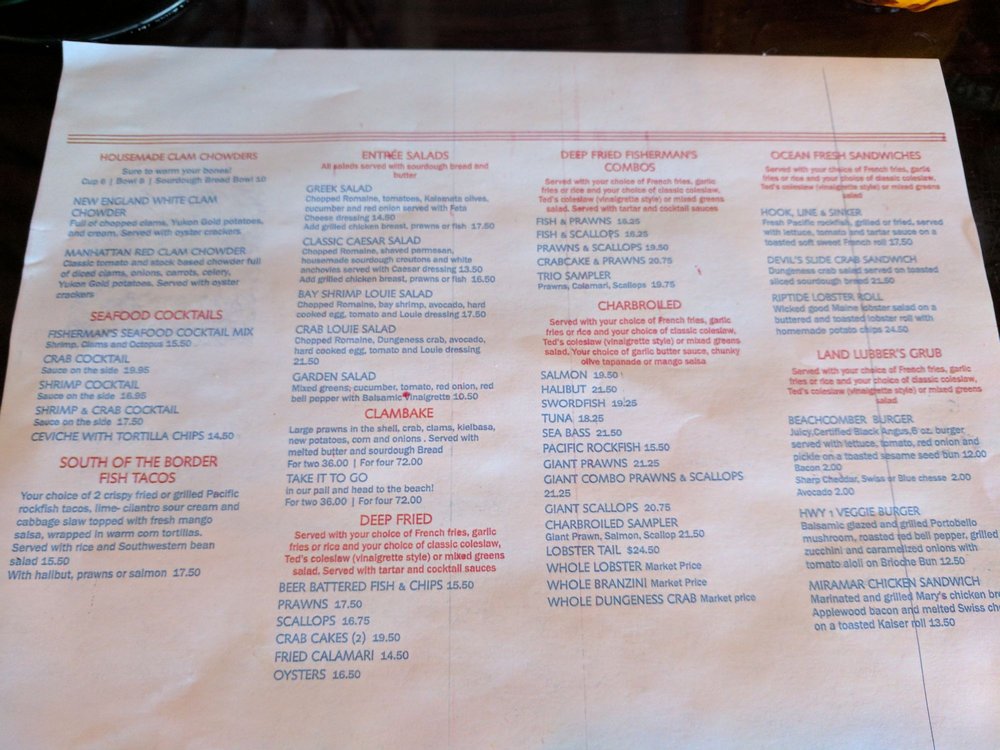 HOUSEMADE CLAM CHOWDERS
Sure to warm your bones!
Cup 6 | Bowl 8 | Sourdough Bread Bowl 10
NEW ENGLAND WHITE CLAM
CHOWDER
Full of chopped clams, Yukon Gold potatoes,
and cream. Served with oyster crackers
MANHATTAN RED CLAM CHOWDER
Classic tomato and stock based chowder full
of diced clams, onions, carrots, celery,
Yukon Gold potatoes. Served with oyster
crackers
SEAFOOD COCKTAILS
FISHERMAN'S SEAFOOD COCKTAIL MIX
Shrimp, Clams and Octopus 15.50
CRAB COCKTAIL
Sauce on the side 19.95
SHRIMP COCKTAIL
Sauce on the side 16.95
SHRIMP & CRAB COCKTAIL
Sauce on the side 17.50
CEVICHE WITH TORTILLA CHIPS 14.50
SOUTH OF THE BORDER
FISH TACOS
Your choice of 2 crispy fried or grilled Pacific
rockfish tacos, lime- cilantro sour cream and
cabbage slaw topped with fresh mango
salsa, wrapped in warm corn tortillas.
Served with rice and Southwestern bean
salad 15.50
With halibut, prawns or salmon 17.50
ENTRÉE SALADS
All salads served with sourdough bread and
butter
GREEK SALAD
Chopped Romaine, tomatoes, Kalamata olives,
cucumber and red onion served with Feta
Cheese dressing 14.50
Add grilled chicken breast, prawns or fish 17.50
CLASSIC CAESAR SALAD
Chopped Romaine, shaved parmesan,
housemade sourdough croutons and white
anchovies served with Caesar dressing 13.50
Add grilled chicken breast, prawns or fish 16.50
BAY SHRIMP LOUIE SALAD
Chopped Romaine, bay shrimp, avocado, hard
cooked egg, tomato and Louie dressing 17.50
CRAB LOUIE SALAD
Chopped Romaine, Dungeness crab, avocado,
hard cooked egg, tomato and Louie dressing
21.50
GARDEN SALAD
Mixed greens; cucumber, tomato, red onion, red
bell pepper with Balsamic Vinaigrette 10.50
CLAMBAKE
Large prawns in the shell, crab, clams, kielbasa,
new potatoes, corn and onions . Served with
melted butter and sourdough Bread
For two 36.00 | For four 72.00
TAKE IT TO GO
in our pail and head to the beach!
For two 36.00 | For four 72.00
DEEP FRIED
Served with your choice of French fries, garlic
fries or rice and your choice of classic coleslaw,
Ted's coleslaw (vinaigrette style) or mixed greens
salad. Served with tartar and cocktail sauces
BEER BATTERED FISH & CHIPS 15.50
PRAWNS 17.50
SCALLOPS 16.75
CRAB CAKES (2) 19.50
FRIED CALAMARI 14.50
OYSTERS 16.50
DEEP FRIED FISHERMAN'S
COMBOS
Served with your choice of French fries, garlic
fries or rice and your choice of classic coleslaw,
Ted's coleslaw (vinaigrette style) or mixed greens
salad. Served with tartar and cocktail sauces
FISH & PRAWNS 18.25
FISH & SCALLOPS 18.25
PRAWNS & SCALLOPS 19.50
CRABCAKE & PRAWNS 20.75
TRIO SAMPLER
Prawns, Calamari, Scallops 19.75
CHARBROILED
Served with your choice of French fries, garlic
fries or rice and your choice of classic coleslaw,
Ted's coleslaw (vinaigrette style) or mixed greens
salad. Your choice of garlic butter sauce, chunky
olive tapanade or mango salsa
SALMON 19.50
HALIBUT 21.50
SWORDFISH 19.25
TUNA 18.25
SEA BASS 21.50
PACIFIC ROCKFISH 15.50
GIANT PRAWNS 21.25
GIANT COMBO PRAWNS & SCALLOPS
21.25
GIANT SCALLOPS 20.75
CHARBROILED SAMPLER
Giant Prawn, Salmon, Scallop 21.50
LOBSTER TAIL $24.50
WHOLE LOBSTER Market Price
WHOLE BRANZINI Market Price
WHOLE DUNGENESS CRAB Market price
OCEAN FRESH SANDWICHES
Served with your choice of French fries, garlic
fries or rice and your choice of classic coleslaw,
Ted's coleslaw (vinaigrette style) or mixed greens
salad
HOOK, LINE & SINKER
Fresh Pacific rockfish, grilled or fried, served
with lettuce, tomato and tartar sauce on a
toasted soft sweet French roll 17.50
DEVIL'S SLIDE CRAB SANDWICH
Dungeness crab salad served on toasted
sliced sourdough bread 21.50
RIPTIDE LOBSTER ROLL
Wicked good Maine lobster salad on a
buttered and toasted lobster roll with
homemade potato chips 24.50
LAND LUBBER'S GRUB
Served with your choice of French fries, garlic
fries or rice and your choice of classic coleslaw,
Ted's coleslaw (vinaigrette style) or mixed greens
salad
BEACHCOMBER BURGER
Juicy,Certified Black Angus,6 oz. burger
served with lettuce, tomato, red onion and
pickle on a toasted sesame seed bun 12.00
Bacon 2.00
Sharp Cheddar, Swiss or Blue chesse 2.00
Avocado 2.00
HWY 1 VEGGIE BURGER
Balsamic glazed and grilled Portobello
mushroom, roasted red bell pepper, grilled
zucchini and caramelized onions with
tomato aioli on Brioche Bun 12.50
MIRAMAR CHICKEN SANDWICH
Marinated and grilled Mary's chicken bre
Applewood bacon and melted Swiss ch
on a toasted Kaiser roll 13.50